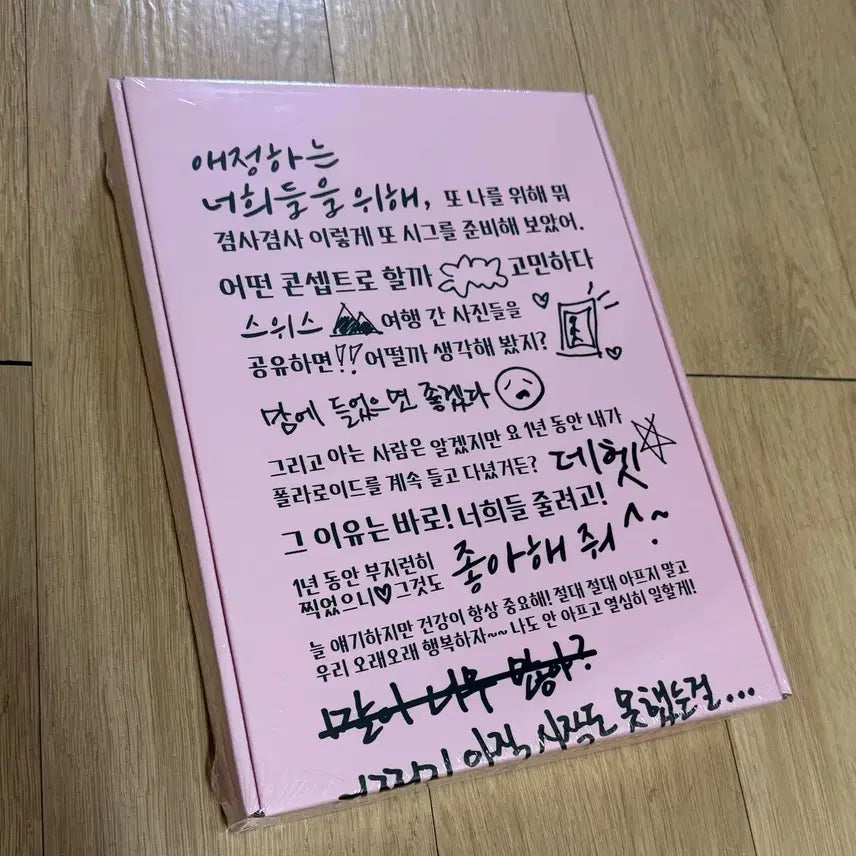 애정하는
너희들을 위해, 또 나를 위해 뭐
겸사겸사 이렇게 또 시그를 준비해 보았어.
어떤 콘셉트로 할까 고민하다
스위스 여행 간 사진들을
공유하면!! 어떨까 생각해 봤지?
맘에 들었으면 좋겠다
그리고 아는 사람은 알겠지만 요 1년 동안 내가
폴라로이드를 계속 들고 다녔거든? 데헷
그 이유는 바로! 너희들 줄려고!
1년 동안 부지런히
찍었으니♥그것도 좋아해 줘^~
늘 얘기하지만 건강이 항상 중요해! 절대 절대 아프지 말고
우리 오래오래 행복하자~~ 나도 안 아프고 열심히 일할게!
너무
아직 시작도 못했는걸...